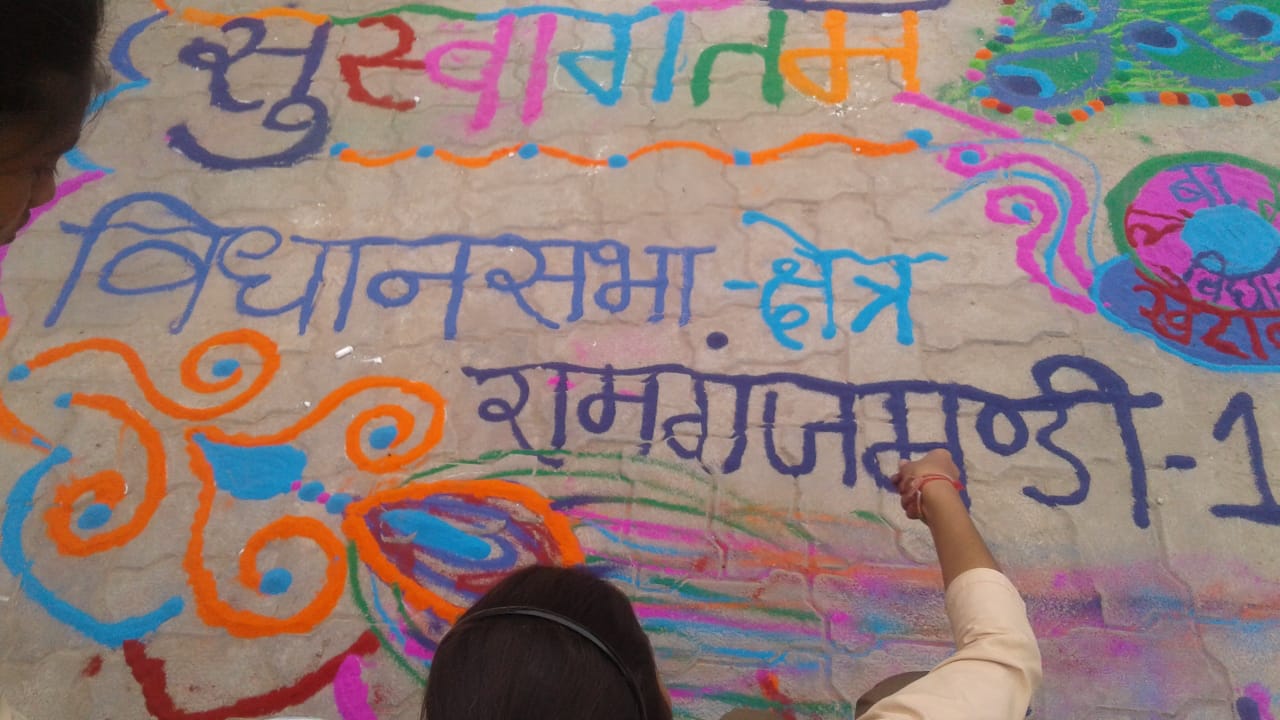 सुस्वागतम
विधानसभा-क्षेत्र
रामगंजमण्डी-1